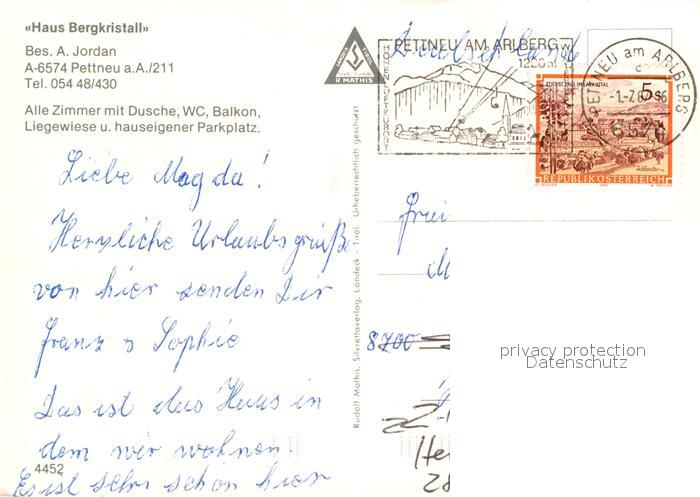 «Haus Bergkristall»
Bes. A. Jordan
A-6574 Pettneu a.A./211
Tel. 054 48/430
Alle Zimmer mit Dusche, WC, Balkon,
Liegewiese u. hauseigener Parkplatz.
Liebe Magda!
Herzliche Urlaubsgrüße
von hier senden Dir
Franz u Sophie
Das ist das Haus in
dem wir wohnen.
Es ist sehr schön hier
4452
R. MATHIS
Rudolf Mathis, Silvrettaverlag, Landeck - Tirol. Urheberrechtlich geschützt
Deutschland
PETTNEU AM ARLBERG
HÖHENLUFTKURORT
PETTNEU am ARLBERG
5s
REPUBLIK ÖSTERREICH
8700
privacy protection
Datenschutz